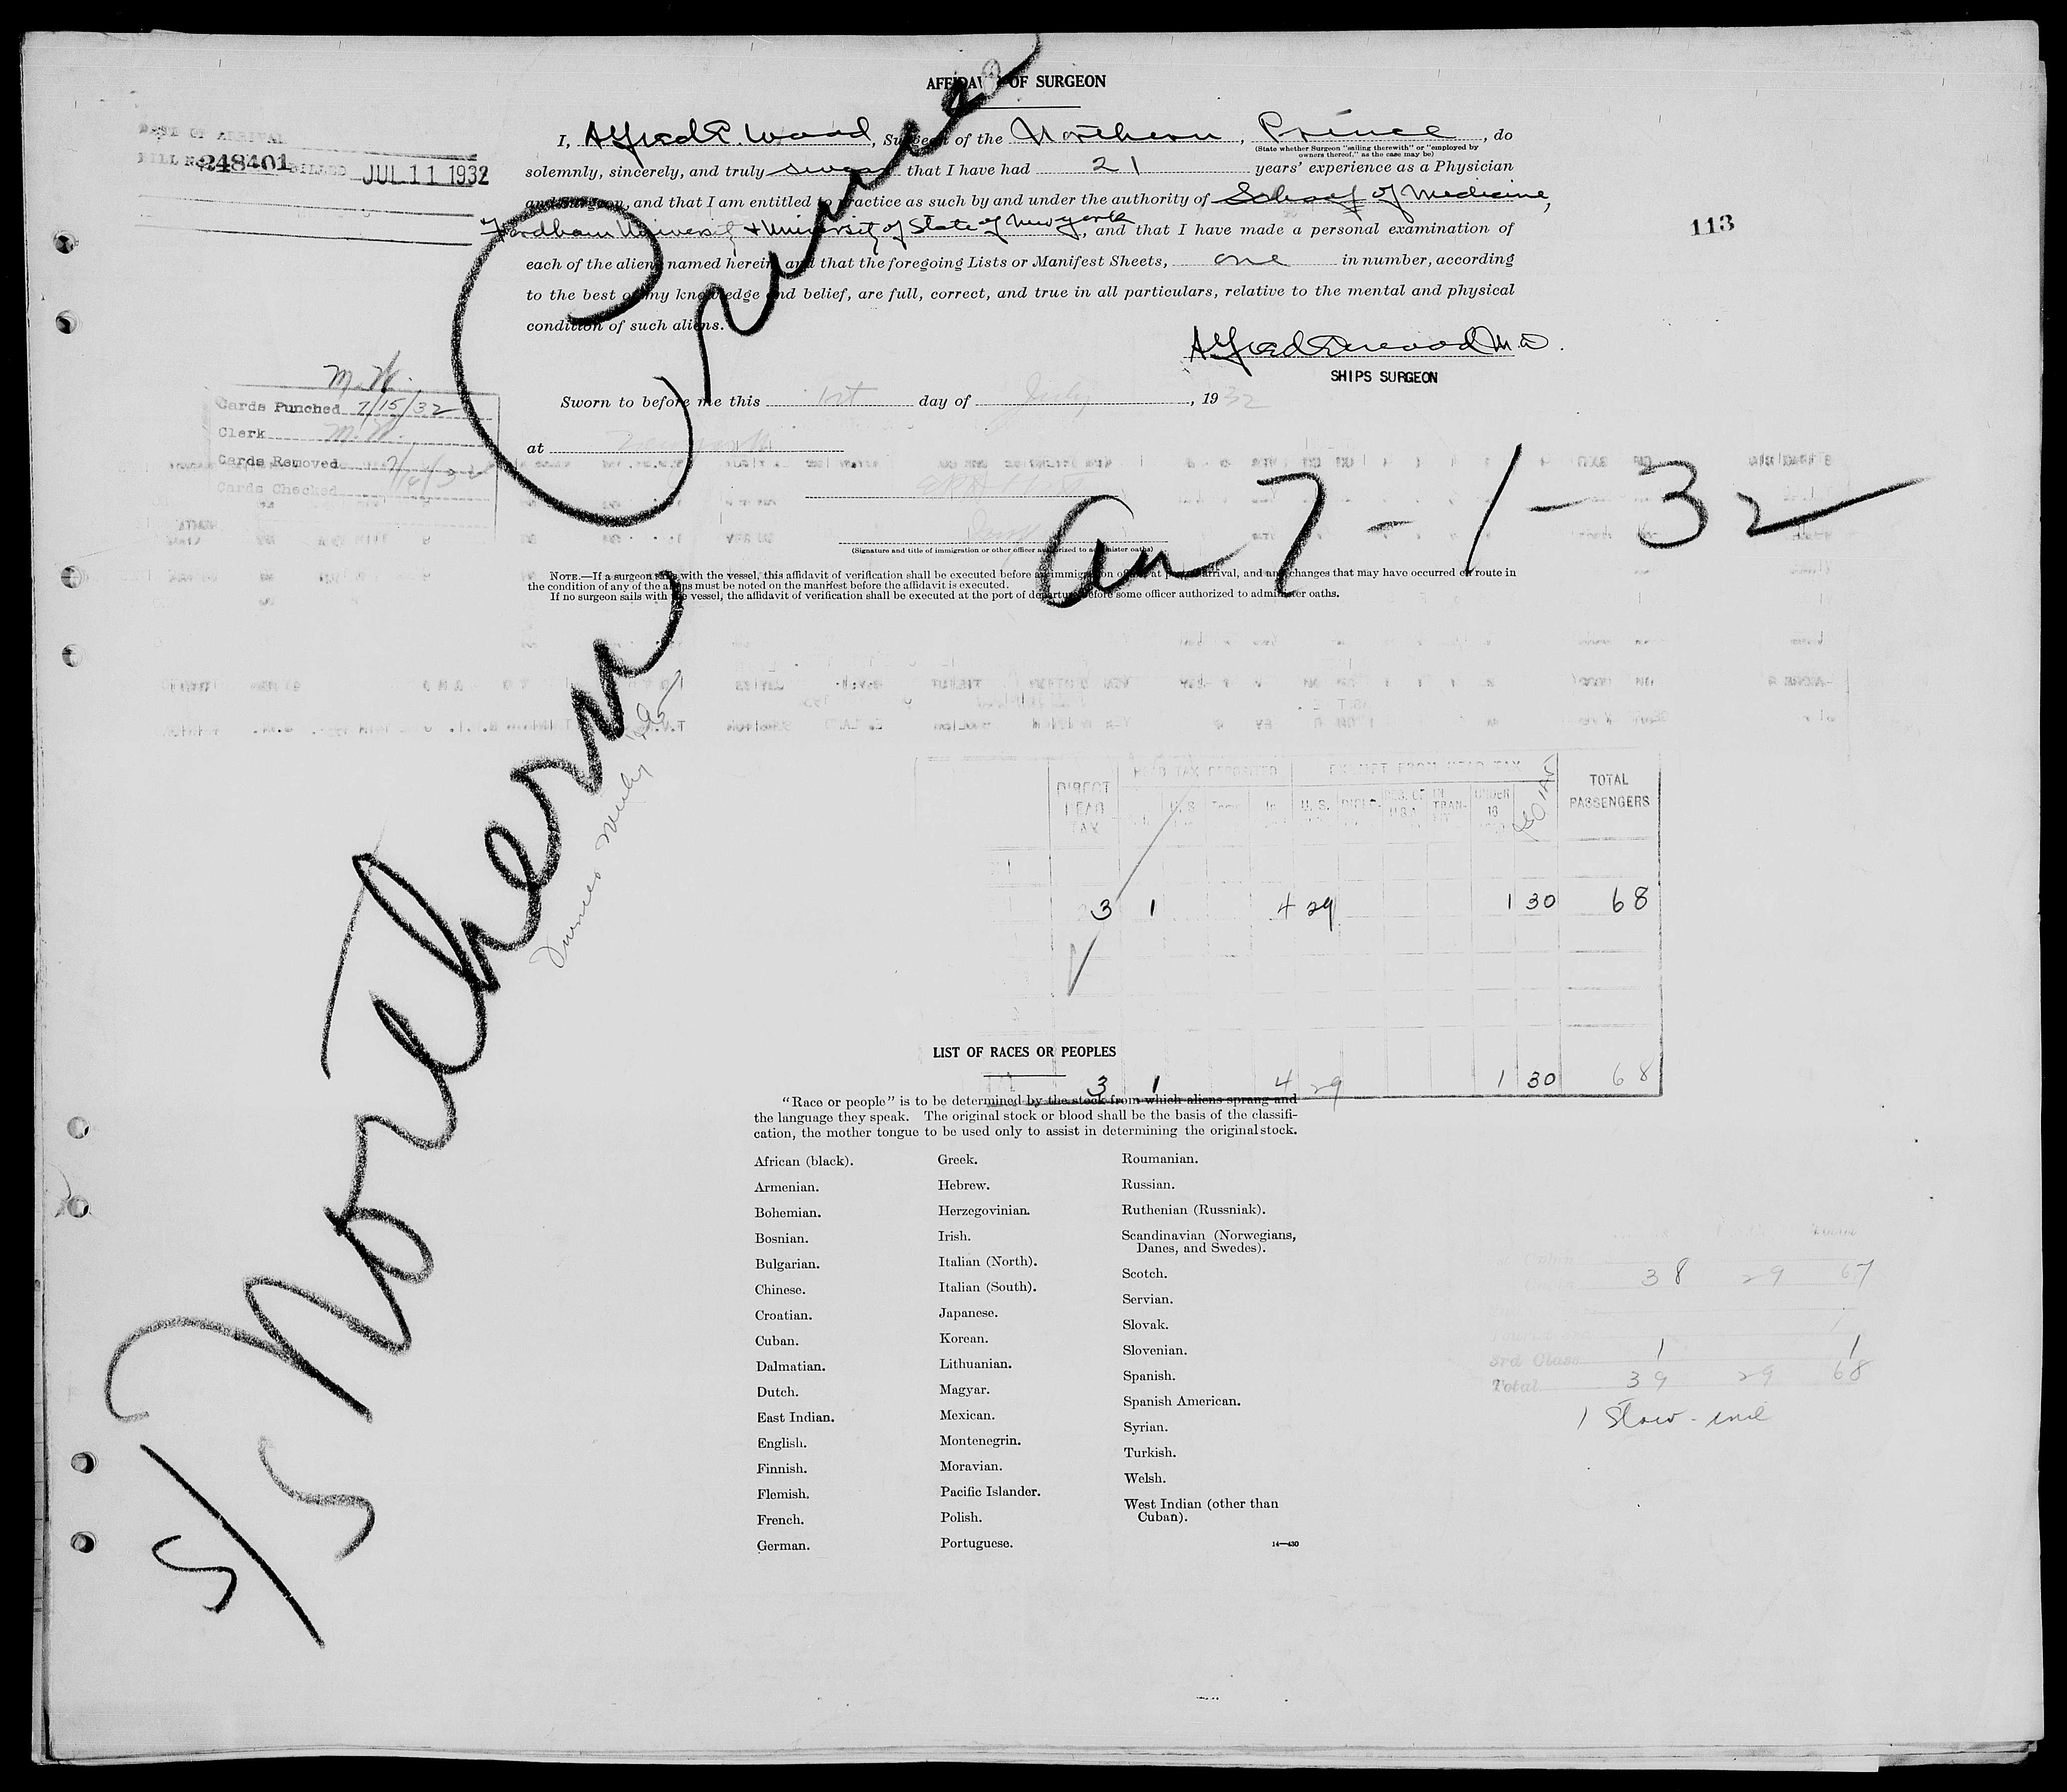 AFFIDAVIT OF SURGEON
I, Alfred E. Wood, Surgeon of the Northern, Prince, do
(State whether Surgeon "sailing therewith" or "employed by
owners thereof," as the case may be)
solemnly, sincerely, and truly swear that I have had 21 years' experience as a Physician
and Surgeon, and that I am entitled to practice as such by and under the authority of School of Medicine,
Fordham University & University of State of New York, and that I have made a personal examination of
each of the aliens named herein, and that the foregoing Lists or Manifest Sheets, one in number, according
to the best of my knowledge and belief, are full, correct, and true in all particulars, relative to the mental and physical
condition of such aliens.
DATE OF ARRIVAL
BILL No. 248401 BILLED JUL 11 1932
113
Alfred E Wood M.D.
SHIPS SURGEON
M.W.
Cards Punched 7/15/32
Clerk M.W.
Cards Removed
Cards Checked
Sworn to before me this 1st day of July, 1932
at
(Signature and title of immigration or other officer authorized to administer oaths)
NOTE.—If a surgeon sails with the vessel, this affidavit of verification shall be executed before an immigration officer at port of arrival, and any changes that may have occurred en route in
the condition of any of the aliens must be noted on the manifest before the affidavit is executed.
If no surgeon sails with the vessel, the affidavit of verification shall be executed at the port of departure before some officer authorized to administer oaths.
S/S Northern Prince
arr 7-1-32
DIRECT HEAD TAX
HEAD TAX DEPOSITED
EXEMPT FROM HEAD TAX
TOTAL PASSENGERS
U.S. UNDER 16
3 1 4 29 1 30 68
3 1 4 29 1 30 68
LIST OF RACES OR PEOPLES
"Race or people" is to be determined by the stock from which aliens sprang and
the language they speak. The original stock or blood shall be the basis of the classifi-
cation, the mother tongue to be used only to assist in determining the original stock.
African (black).
Armenian.
Bohemian.
Bosnian.
Bulgarian.
Chinese.
Croatian.
Cuban.
Dalmatian.
Dutch.
East Indian.
English.
Finnish.
Flemish.
French.
German.
Greek.
Hebrew.
Herzegovinian.
Irish.
Italian (North).
Italian (South).
Japanese.
Korean.
Lithuanian.
Magyar.
Mexican.
Montenegrin.
Moravian.
Pacific Islander.
Polish.
Portuguese.
Roumanian.
Russian.
Ruthenian (Russniak).
Scandinavian (Norwegians,
Danes, and Swedes).
Scotch.
Servian.
Slovak.
Slovenian.
Spanish.
Spanish American.
Syrian.
Turkish.
Welsh.
West Indian (other than
Cuban).
14—430
38 29 67
3rd Class 1 1
Total 39 29 68
1 Stow-